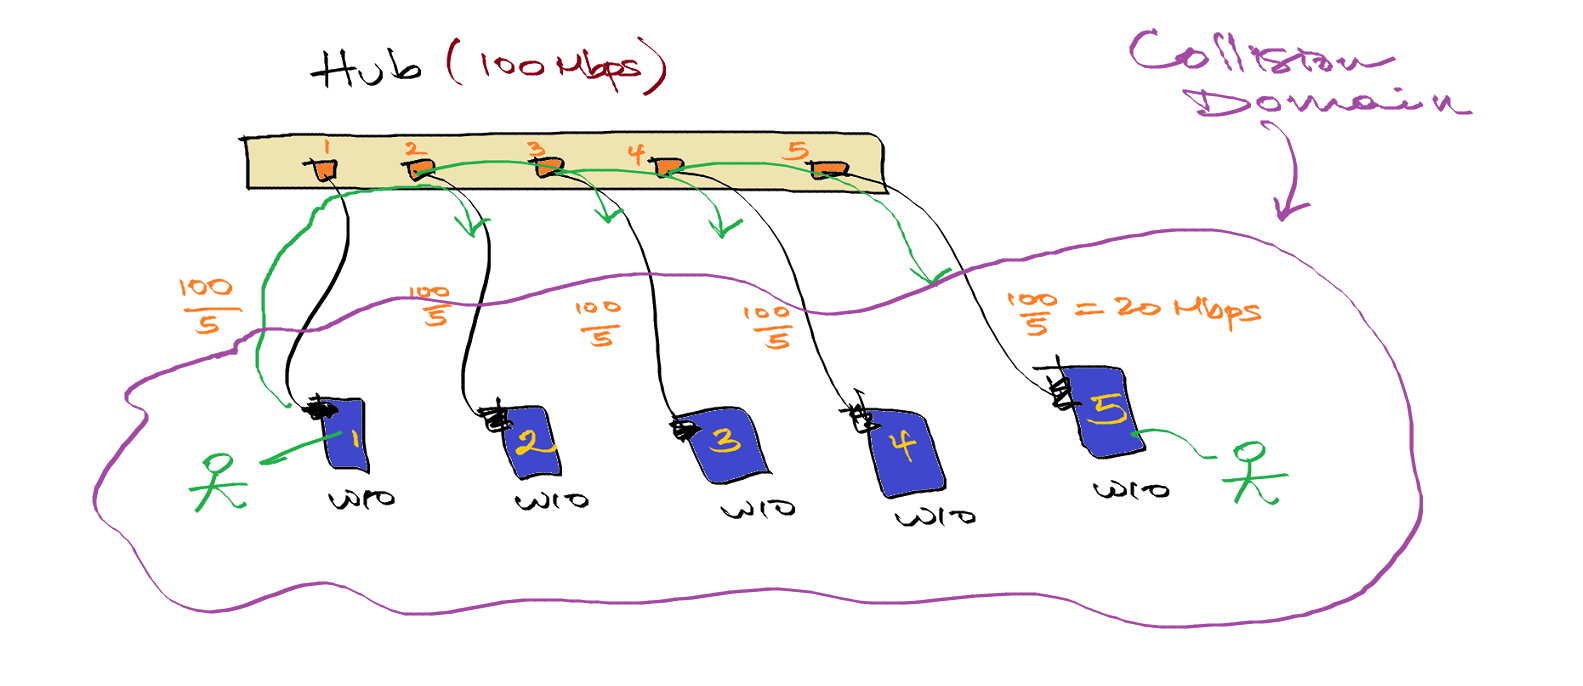 Hub (100 Mbps)
Collision
Domain
1 2 3 4 5
100/5 100/5 100/5 100/5 100/5 = 20 Mbps
1 2 3 4 5
W10 W10 W10 W10 W10